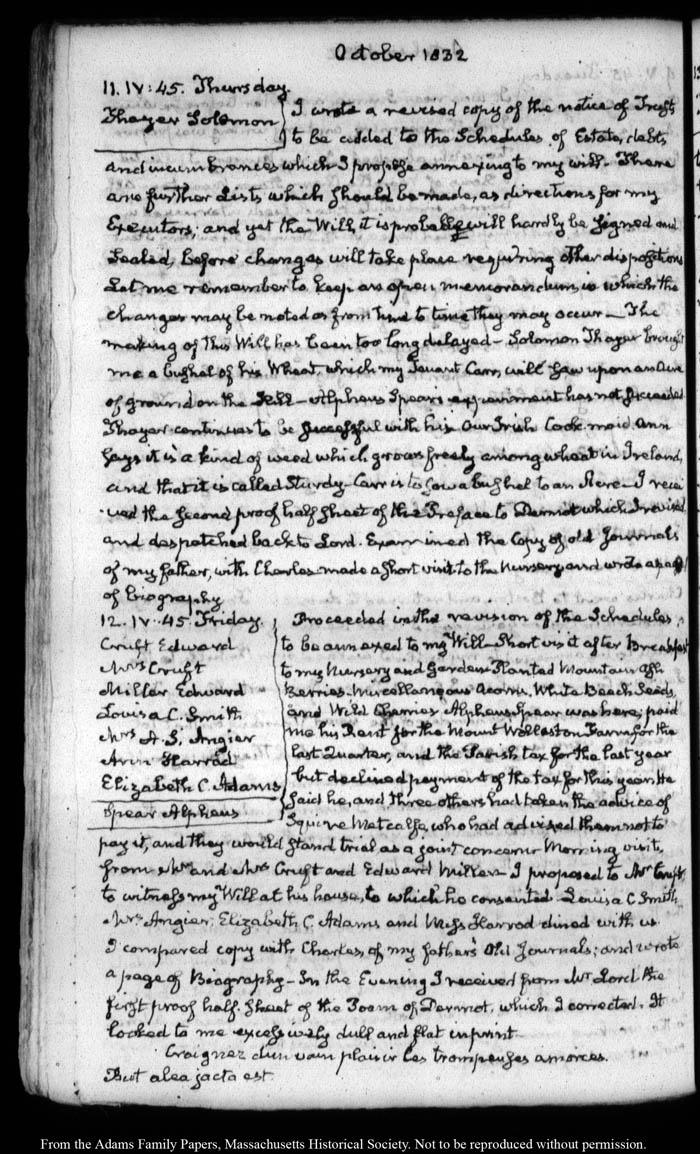 October 1832
11. IV:45. Thursday.
Thayer Solomon
I wrote a revised copy of the notice of Trusts
to be added to the Schedules of Estate, debts
and incumbrances which I propose annexing to my will. There
are further Lists which should be made, as directions for my
Executors; and yet the Will, it is probable will hardly be signed and
sealed, before changes will take place requiring other dispositions
Let me remember to keep an open memorandum in which the
changes may be noted as from time to time they may occur— The
making of this Will has been too long delayed— Solomon Thayer brought
me a bushel of his Wheat, which my Tenant Carr, will sow upon an Acre
of ground on the Hill— Alpheus Spear's experiment has not succeeded
Thayer continues to be successful with his. Our Irish Cook-maid Ann
says it is a kind of weed which grows freely among wheat in Ireland,
and that it is called Sturdy— Carr is to sow a bushel to an Acre— I recei
ved the second proof half sheet of the Preface to Dermot which I revised
and despatched back to Lord. Examined the Copy of old Journals
of my father, with Charles made a short visit to the Nursery and wrote a page
of biography
12. IV:45. Friday.
Cruft Edward
Mrs Cruft
Miller Edward
Louisa C. Smith
Mrs A. S. Angier
Ann Harrod
Elizabeth C. Adams
Spear Alpheus
Proceeded in the revision of the Schedules
to be annexed to my Will— Short visit after Breakfast
to my Nursery and Garden. Planted Mountain Ash
Berries. Miscellaneous Acorns, White Beach Seeds,
and Wild Cherries— Alpheus Spear was here; paid
me his Rent for the Mount Wollaston Farm for the
last Quarter, and the Parish tax for the last year
but declined payment of the tax for this year. He
said he, and three others had taken the advice of
Squire Metcalfe, who had advised them not to
pay it, and they would stand trial as a joint concern. Morning visits,
from Mr and Mrs Cruft and Edward Miller. I proposed to Mr Cruft,
to witness my Will at his house, to which he consented. Louisa C. Smith
Mrs Angier, Elizabeth C. Adams and Miss Harrod dined with us
I compared copy with Charles, of my father's Old Journals; and wrote
a page of Biography— In the Evening I received from Mr Lord the
first proof half sheet of the Poem of Dermot, which I corrected. It
looked to me excessively dull and flat in print.
Craignez d'un vain plaisir les trompeuses amorces.
But alea jacta est
From the Adams Family Papers, Massachusetts Historical Society. Not to be reproduced without permission.